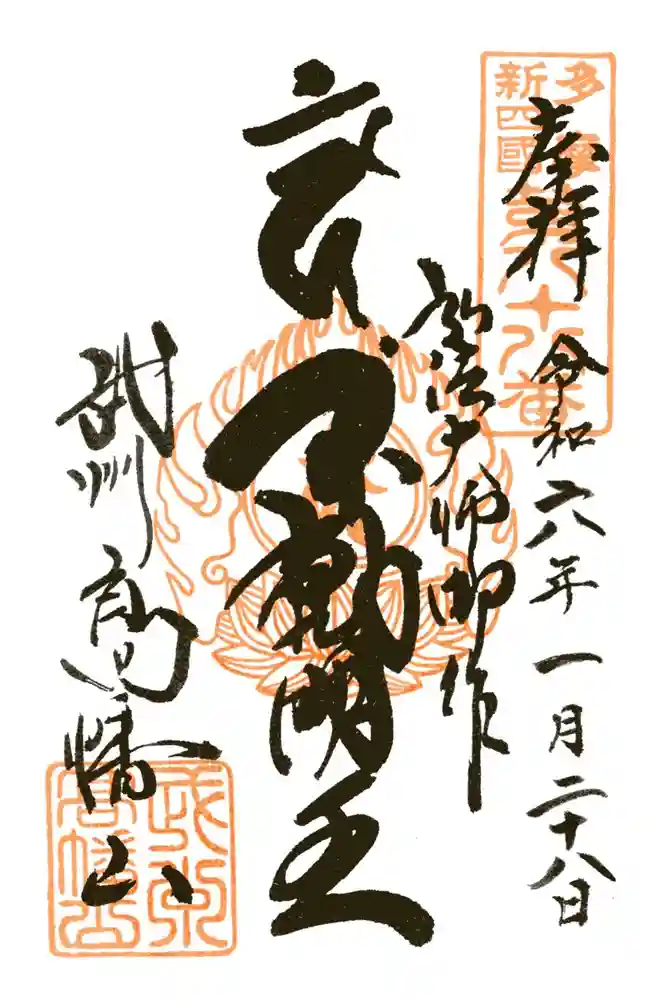 奉拝
令和六年一月二十八日
多摩
新四國
第八十八番
弘法大師御作
不動明王
武州高幡山
武州
高幡山